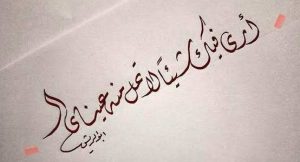 أرى فيك شيئاً لا تمل منه عيناي